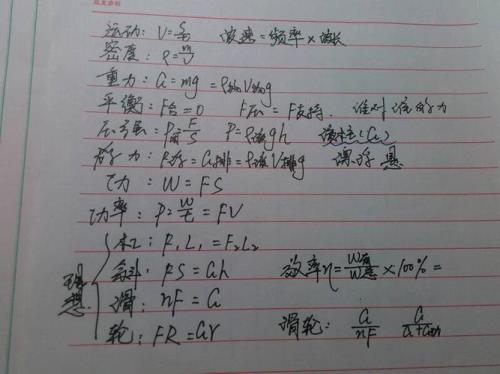 运动：V=S/t 波速=频率×波长
密度：ρ=m/V
重力：G=mg=ρ物V物g
平衡：F合=0 F压=F支持. 谁对谁的力
压强：P=F/S P=ρ液gh 液柱(G)
浮力：F浮=G排=ρ液V排g 漂浮 悬
功：W=FS
功率：P=W/t=FV
理想
杠：F₁L₁=F₂L₂
斜：FS=Gh 效率η=W有/W总×100%=
滑：nF=G
轮：FR=Gr 滑轮：G/nF G/G+G动